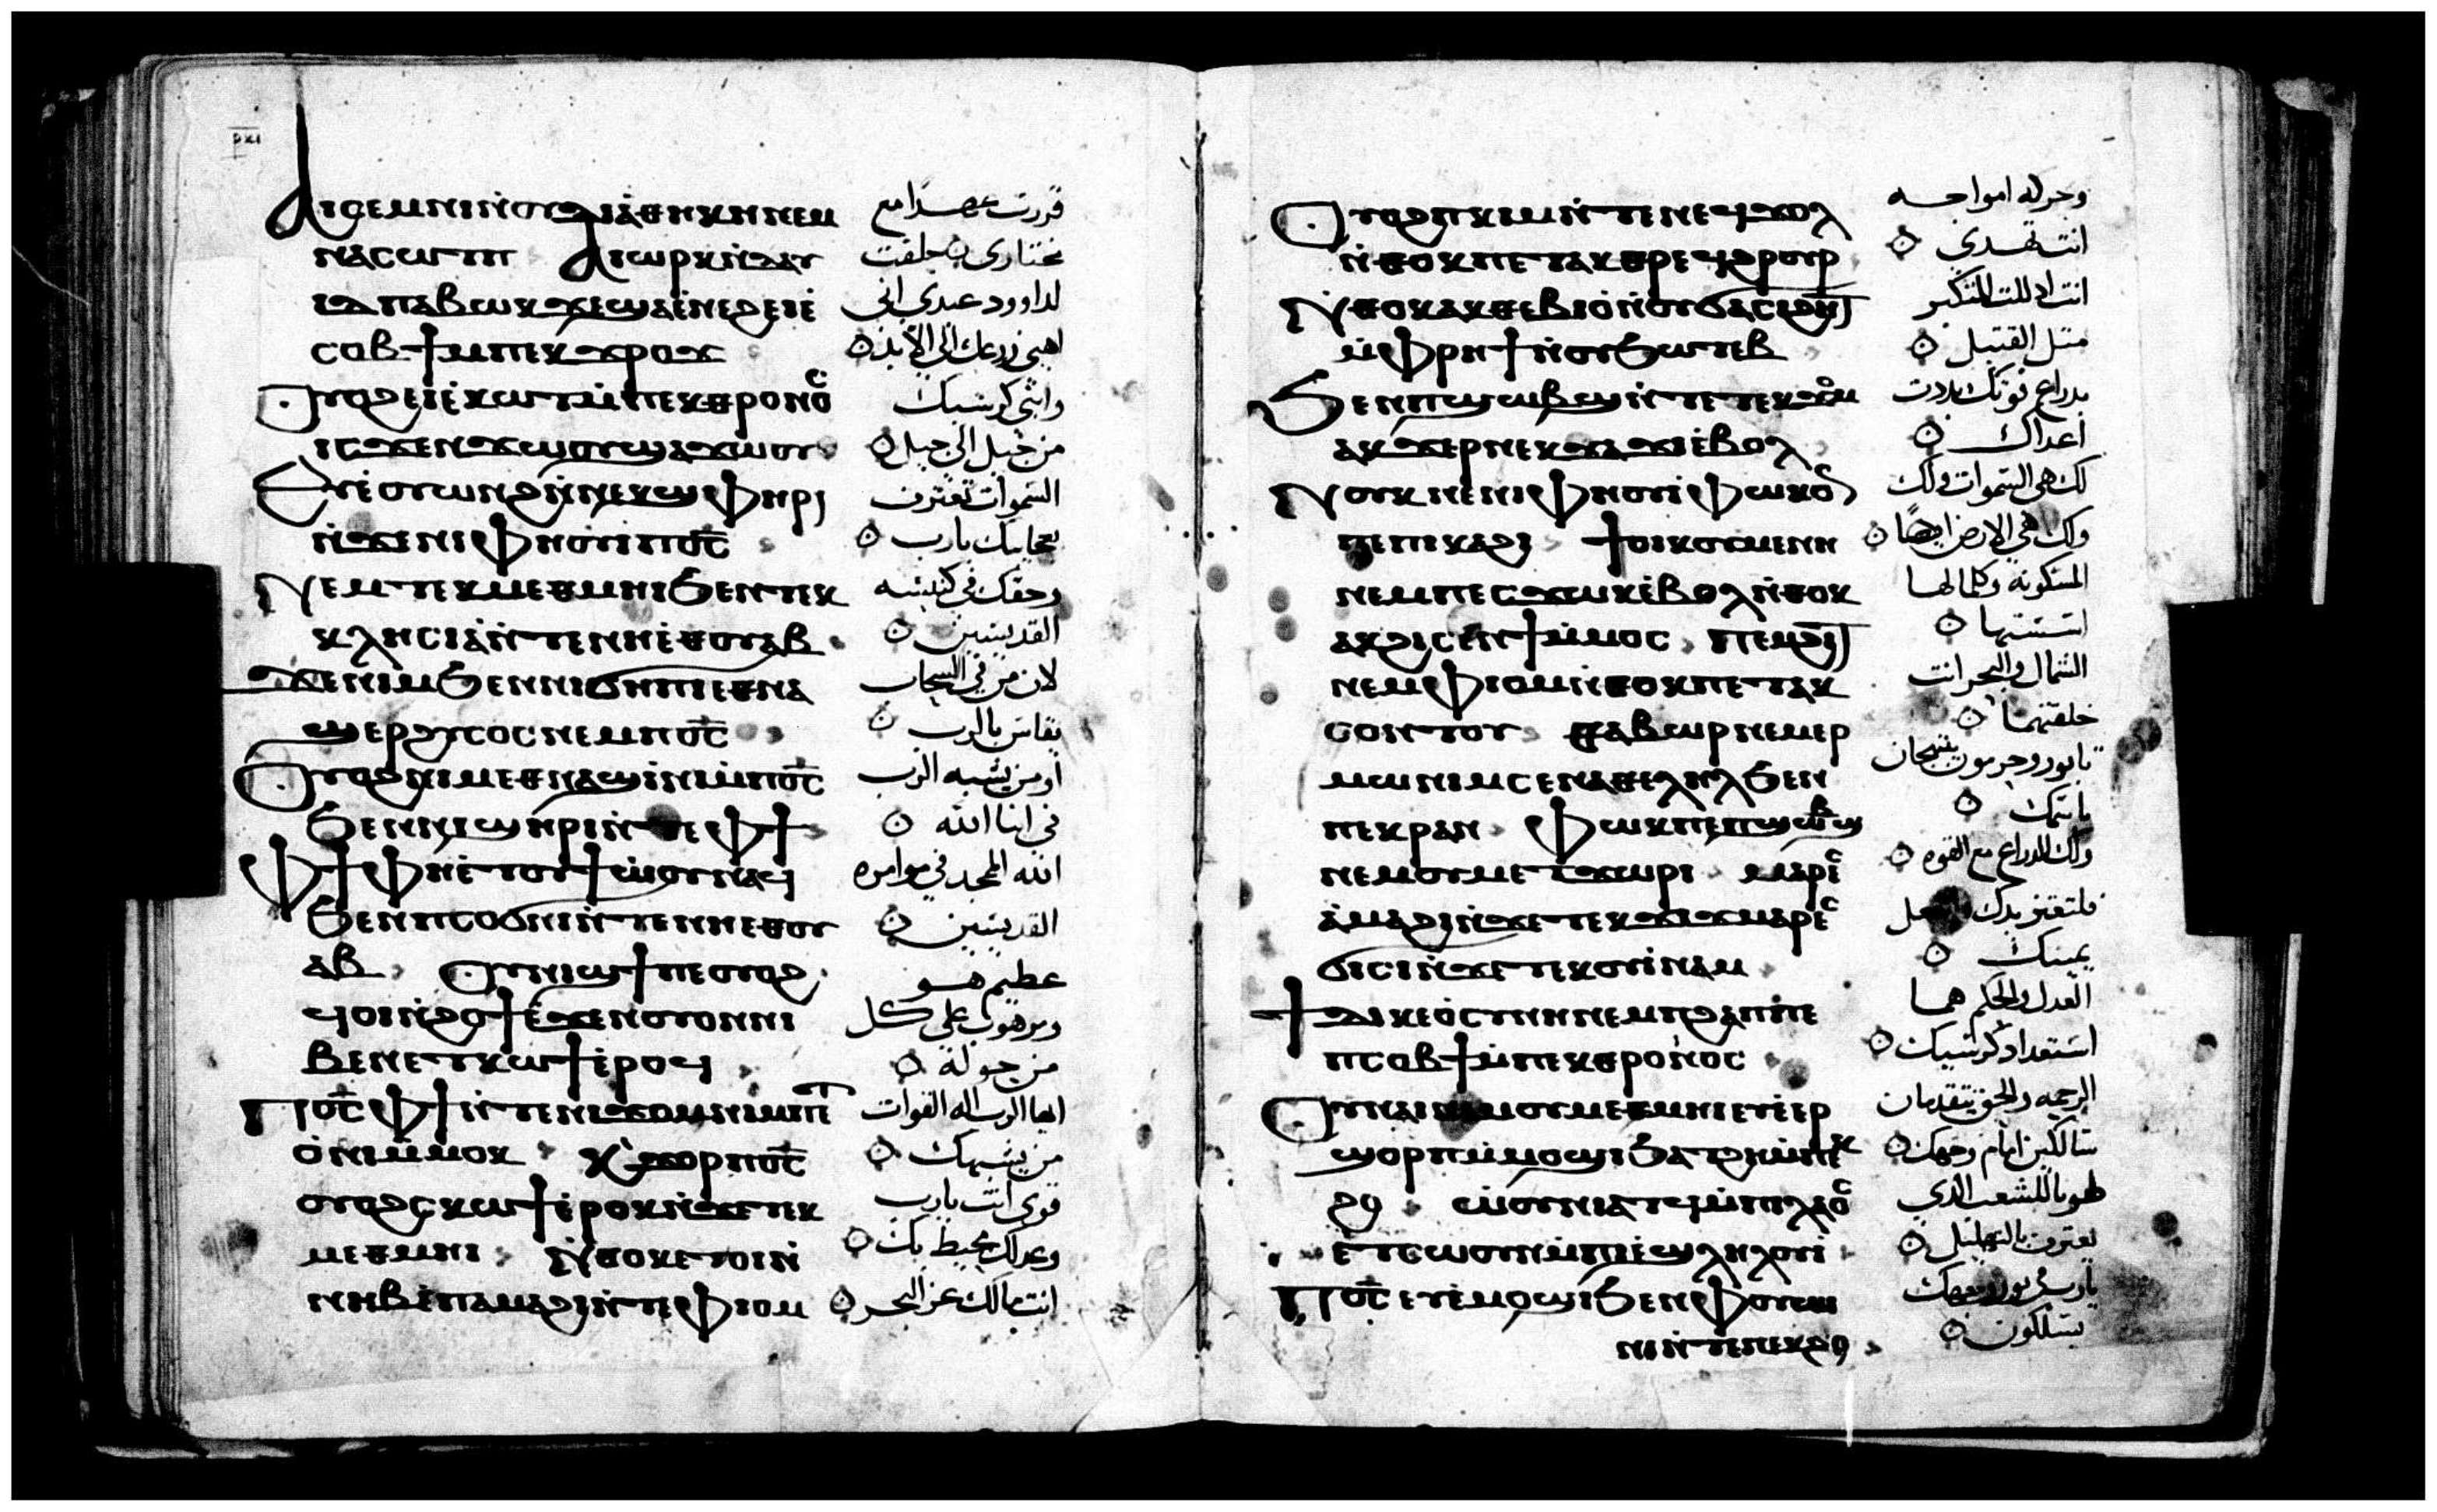 ⲁⲓⲥⲉⲙⲛⲓ ⲛ̇ⲟⲩⲇⲓⲁ̇ⲑⲏⲕⲏ ⲛⲉⲙ
ⲛⲁⲥⲱⲧⲡ ⲁⲓⲱⲣⲕ ⲛ̇ⲇⲁⲩ
ⲓⲇ ⲡⲁⲃⲱⲕ ϫⲉ ϣⲁ ⲉ̇ⲛⲉϩ ⲉⲓⲉ̇
ⲥⲟⲃϯ ⲙ̇ⲡⲉⲕϫⲣⲟϫ
ⲟⲩⲟϩ ⲉⲓⲉ̇ⲕⲱⲧ ⲙ̇ⲡⲉⲕⲑⲣⲟⲛⲟⲥ
ⲓⲥϫⲉⲛ ϫⲱⲟⲩ ϣⲁ ϫⲱⲟⲩ
ⲉⲩⲉ̇ⲟⲩⲱⲛϩ ⲛ̇ⲛⲉⲕϣⲫⲏⲣⲓ
ⲛ̇ϫⲉ ⲛⲓⲫⲏⲟⲩⲓ̇ ⲡⲟ̅ⲥ̅
ⲛⲉⲙ ⲧⲉⲕⲙⲉⲑⲙⲏⲓ ϧⲉⲛ ⲧⲉⲕ
ⲕⲗⲏⲥⲓⲁ̇ ⲛ̇ⲧⲉ ⲛⲏⲉ̇ⲑⲟⲩⲁⲃ
ϫⲉ ⲛⲓⲙ ϧⲉⲛ ⲛⲓϭⲏⲡⲓ ⲉⲑⲛⲁ
ϣⲉⲣϩⲩⲥⲟⲥ ⲛⲉⲙ ⲡⲟ̅ⲥ̅
ⲟⲩⲟϩ ⲛⲓⲙ ⲉⲑⲛⲁϣⲓ̇ⲛⲓ ⲙ̇ⲡⲟ̅ⲥ̅
ϧⲉⲛ ⲛⲓϣⲏⲣⲓ ⲛ̇ⲧⲉ ⲫϯ
ⲫϯ ⲫⲏⲉ̇ⲧⲟⲩϯⲱ̇ⲟⲩ ⲛⲁϥ
ϧⲉⲛ ⲡⲥⲟϭⲛⲓ ⲛ̇ⲧⲉ ⲛⲏⲉⲑⲟⲩ
ⲁⲃ ⲟⲩⲛⲓϣϯ ⲡⲉ ⲟⲩⲟϩ
ϥⲟⲓ ⲛ̇ϩⲟϯ ⲉ̇ϫⲉⲛ ⲟⲩⲟⲛ ⲛⲓ
ⲃⲉⲛ ⲉⲧⲕⲱϯ ⲉ̇ⲣⲟϥ
ⲡⲟ̅ⲥ̅ ⲫϯ ⲛ̇ⲧⲉ ⲛⲓϫⲟⲙ ⲛⲓⲙ ⲡⲉⲧ
ⲟ̇ⲛⲓ ⲙ̇ⲙⲟⲕ ⲕ̇ϫⲟⲣ ⲡⲟ̅ⲥ̅
ⲟⲩⲟϩ ⲥⲕⲱϯ ⲉ̇ⲣⲟⲕ ⲛ̇ϫⲉ ⲧⲉⲕ
ⲙⲉⲑⲙⲏⲓ ⲛ̇ⲑⲟⲕ ⲉⲧⲟⲓ ⲛ̇
ⲛⲏⲃ ⲉ̇ⲡⲁⲙⲁϩⲓ ⲛ̇ⲧⲉ ⲫⲓⲟⲙ
قررت عهدًا مع
مختاري حلفت
لداوود عبدي اني
اهيي زرعك الي الابد
وابني كرسيك
من جيل الي جيل
السموات تعترف
بعجايبك يارب
وحقك في كنيسه
القديسين
لان من في السحاب
يقاس بالرب
او من يشبه الرب
في ابنا الله
الله الممجد في موامره
القديسين
عظيم هو
ومرهوب علي كل
من حوله
ايها الرب اله القوات
من يشبهك
قوي انت يارب
وعدلك محيط بك
انت مالك عز البحر
ⲟⲩⲟϩ ⲡⲕⲓⲙ ⲛ̇ⲧⲉ ⲛⲉϥϫⲟⲗ
ⲛ̇ⲑⲟⲕ ⲡⲉⲧⲁⲕⲑⲣⲉϥϩⲣⲟⲩⲣ
ⲛ̇ⲑⲟⲕ ⲁⲕⲑⲉⲃⲓⲟ̇ ⲛ̇ⲟⲩϭⲁⲥⲓϩⲏⲧ
ⲙ̇ⲫⲣⲏϯ ⲛ̇ⲟⲩϧⲱⲧⲉⲃ
ϧⲉⲛ ⲡϣⲱⲃϣ ⲛ̇ⲧⲉ ⲧⲉⲕϫⲟⲙ
ⲁⲕϫⲉⲣ ⲛⲉⲕϫⲁϫⲓ ⲉ̇ⲃⲟⲗ
ⲛⲟⲩⲕ ⲛⲉ ⲛⲓⲫⲏⲟⲩⲓ̇ ⲫⲱⲕ ⲟⲛ
ⲡⲉ ⲡⲓⲕⲁϩⲓ ϯⲟⲓⲕⲟⲩⲙⲉⲛⲏ
ⲛⲉⲙ ⲡⲉⲥϫⲱⲕ ⲉ̇ⲃⲟⲗ ⲛ̇ⲑⲟⲕ
ⲁⲕϩⲓⲥⲉⲛϯ ⲙ̇ⲙⲟⲥ ⲡⲉⲙϩⲓⲧ
ⲛⲉⲙ ⲫⲓⲟⲙ ⲛ̇ⲑⲟⲕ ⲡⲉⲧⲁⲕ
ⲥⲟⲛⲧⲟⲩ ⲑⲁⲃⲱⲣ ⲛⲉⲙ ⲉⲣ
ⲙⲱⲛⲓⲙ ⲥⲉⲛⲁⲑⲉⲗⲏⲗ ϧⲉⲛ
ⲡⲉⲕⲣⲁⲛ ⲫⲱⲕ ⲡⲉ ⲡϣⲱⲃϣ
ⲛⲉⲙ ⲟⲩⲙⲉⲧϫⲱⲣⲓ ⲙⲁⲣⲉⲥ
ⲁ̇ⲙⲁϩⲓ ⲛ̇ϫⲉ ⲧⲉⲕϫⲓϫ ⲙⲁⲣⲉⲥ
ϭⲓⲥⲓ ⲛ̇ϫⲉ ⲧⲉⲕⲟⲩⲓ̇ⲛⲁⲙ
ϯⲇⲓⲕⲉⲟⲥⲩⲛⲏ ⲛⲉⲙ ⲡϩⲁⲡ ⲡⲉ
ⲡⲥⲟⲃϯ ⲙ̇ⲡⲉⲕⲑⲣⲟⲛⲟⲥ
ⲟⲩⲛⲁⲓ ⲛⲉⲙ ⲟⲩⲙⲉⲑⲙⲏⲓ ⲉⲩⲉ̇ⲉⲣ
ϣⲟⲣⲡ ⲙ̇ⲙⲟϣⲓ ϧⲁⲧϩⲏ ⲙ̇ⲡⲉⲕ
ϩⲟ ⲱ̇ⲟⲩⲛⲓⲁⲧϥ ⲙ̇ⲡⲓⲗⲁⲟⲥ
ⲉⲧⲥⲱⲟⲩⲛ ⲙ̇ⲡⲓⲉ̇ϣⲗⲏⲗⲟⲩⲓ̇
ⲡⲟ̅ⲥ̅ ⲉⲩⲉ̇ⲙⲟϣⲓ ϧⲉⲛ ⲫⲟⲩⲱⲓ
ⲛⲓ ⲛ̇ⲧⲉ ⲡⲉⲕϩⲟ
وحركه امواجه
انت تهدي
انت اذللت المتكبر
متل القتيل
بدراع قوتك بددت
اعداك
لك هي السموات ولك
ولك هي الارض ايضًا
المسكونه وكمالها
اسستها
الشمال والبحر انت
خلقتهما
تابور وحرمون يبتهجان
باسمك
ولك الدراع مع القوه
فلتعتز يدك
يمينك
العدل والحكم هما
استعداد كرسيك
الرحمه والحق يتقدمان
سالكين امام وجهك
طوبا للشعب الذي
يعترف بالتهليل
يارب بنور وجهك
يسلكون